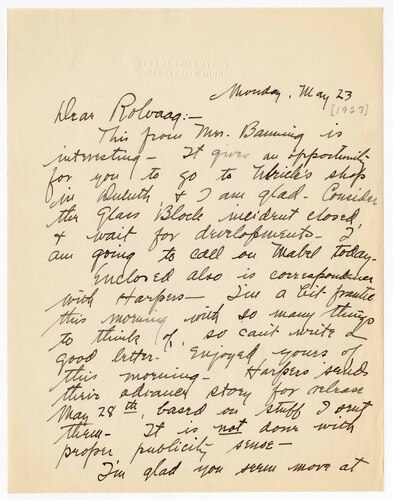 Monday, May 23
[1927]
Dear Rolvaag:-
This from Mrs. Banning is
interesting - It gives an opportunity
for you to go to Ulrich's shop
in Duluth, & I am glad. Consider
the Glass Block incident closed,
& wait for developments - I
am going to call on Mabel today -
Enclosed also is correspondence
with Harpers - I'm a bit frantic
this morning with so many things
to think of, so can't write a
good letter - Enjoyed yours of
this morning - Harpers sends
their advance story for release
May 28th, based on stuff I sent
them - It is not done with
proper publicity sense -
I'm glad you seem more at